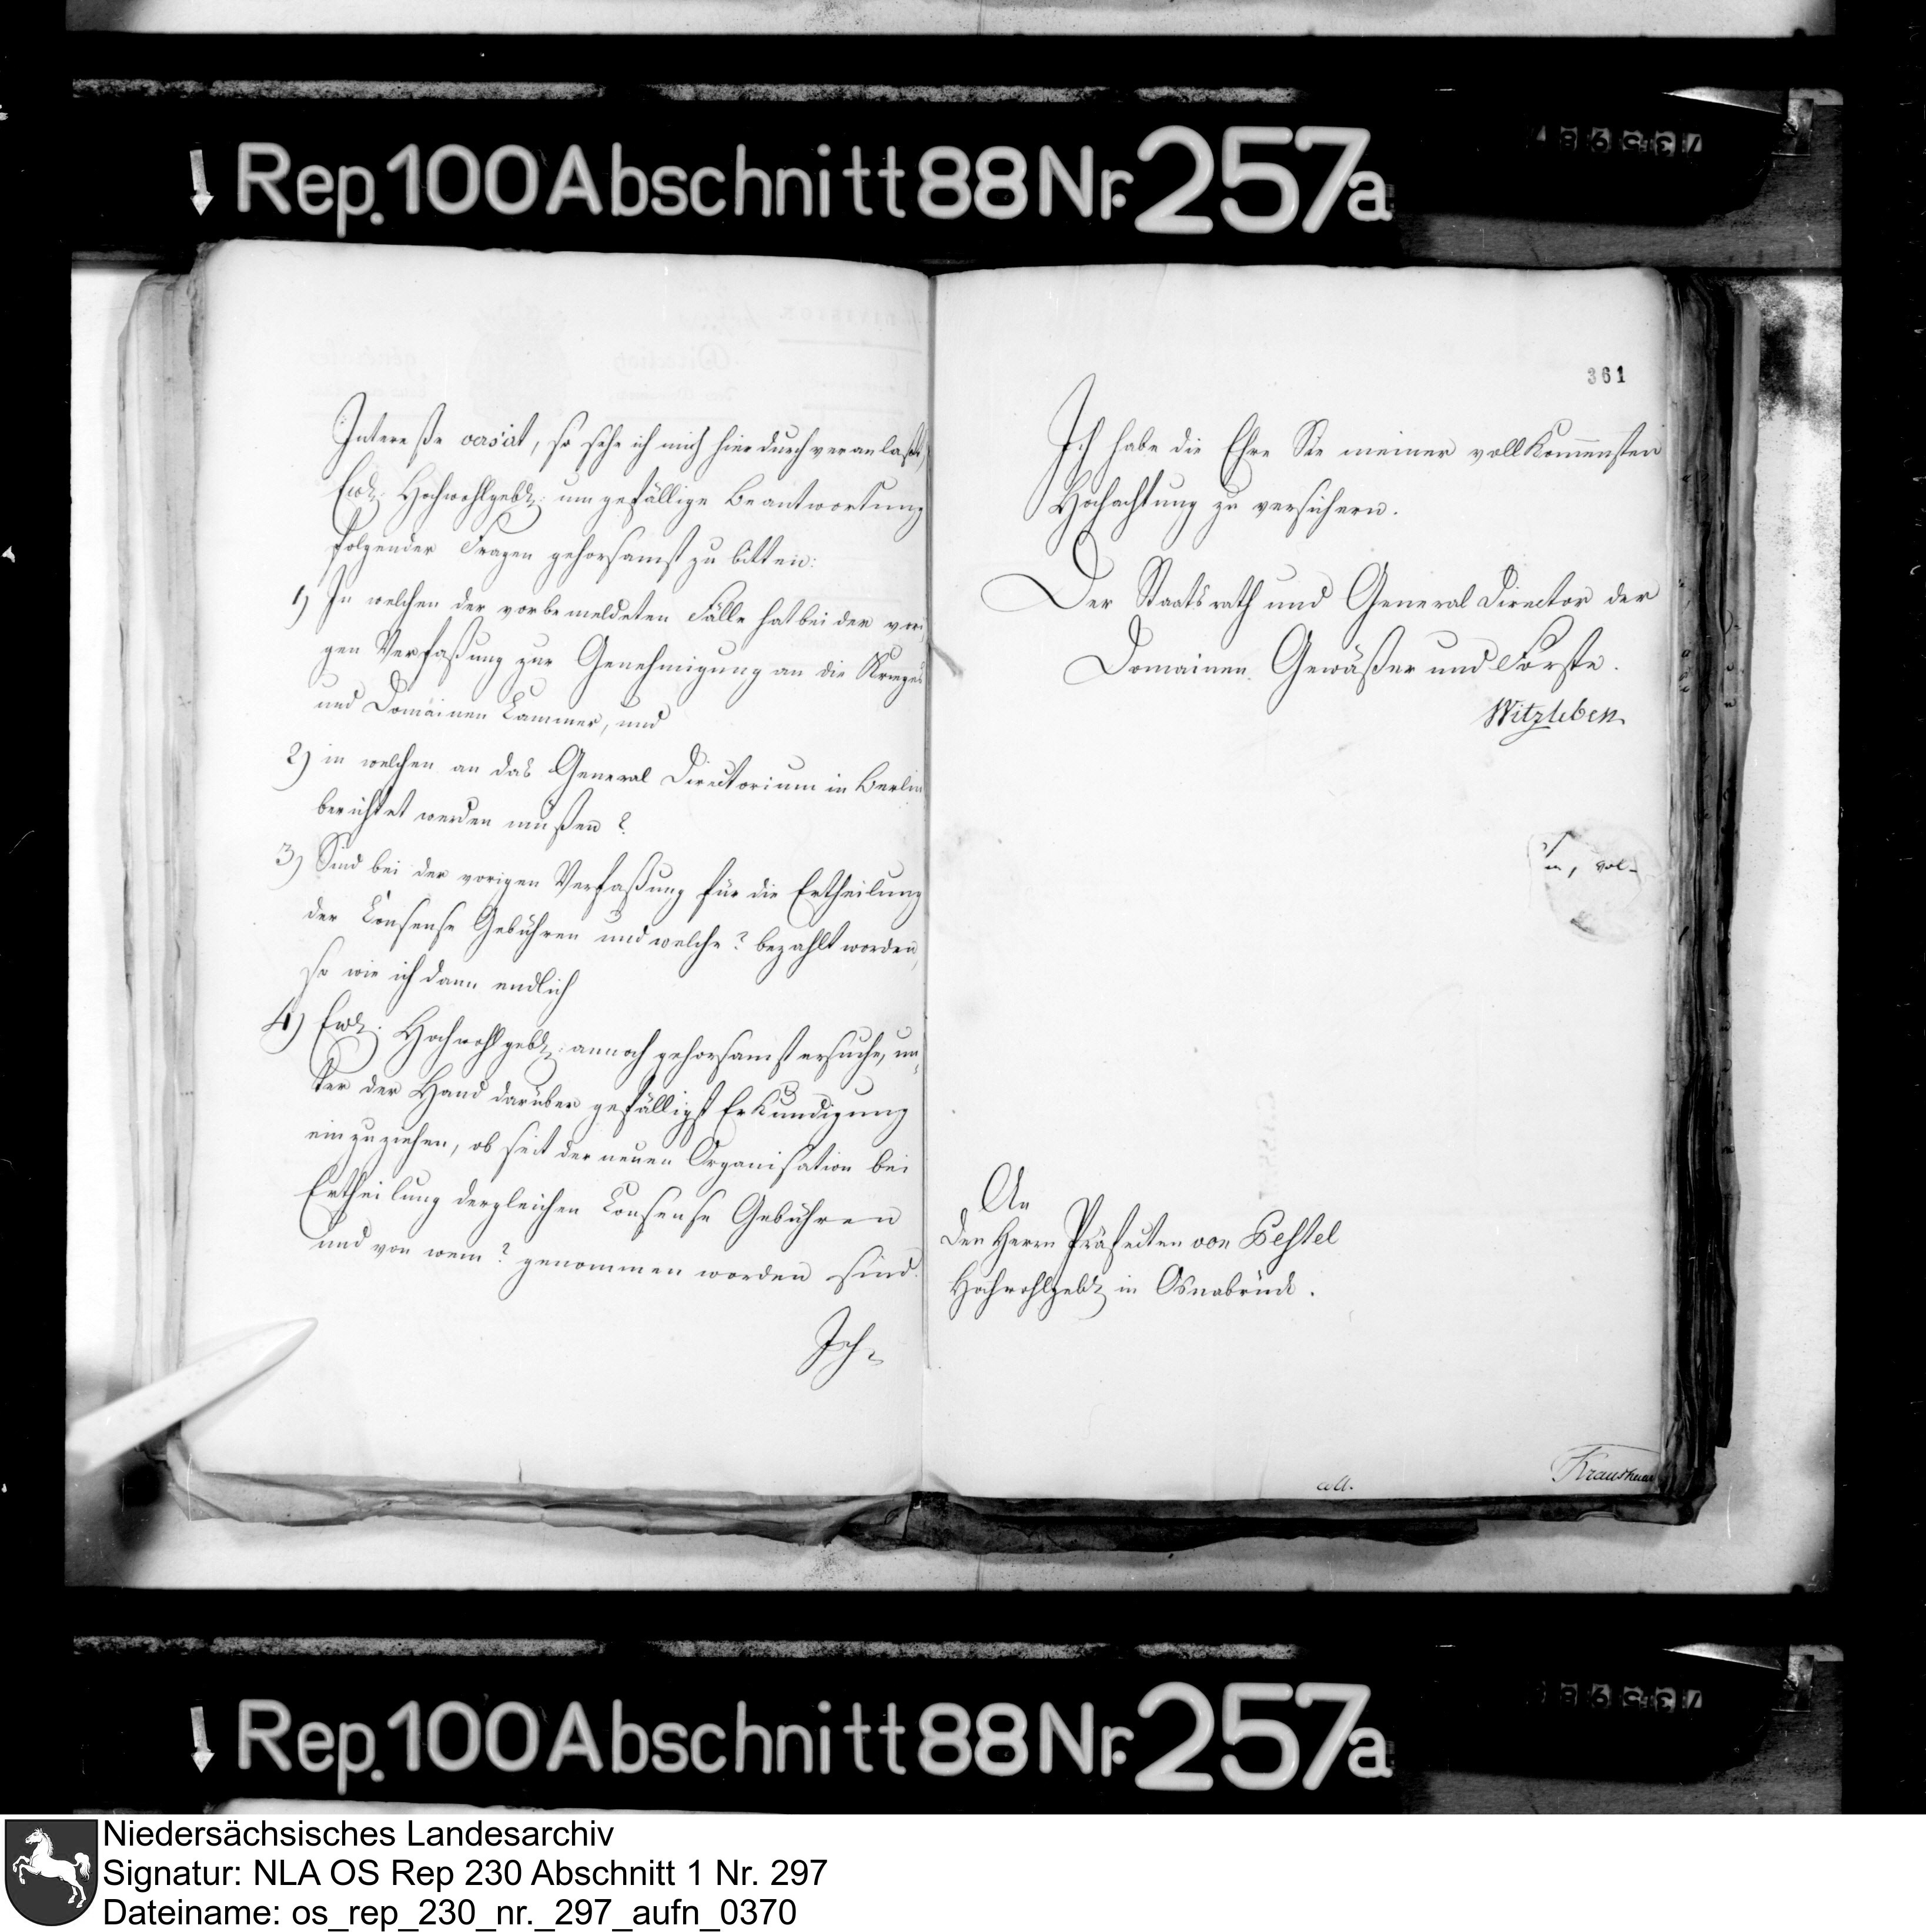 Rep. 100 Abschnitt 88 Nr. 257a
Intereße versirt, so sehe ich mich hierdurch veranlaßt,
Ewr. Hochwohlgebr. um gefällige Beantwortung
folgender Fragen gehorsamst zu bitten:
1) In welchen der vorbemeldeten Fälle hat bei der vori-
gen Verfaßung zur Genehmigung an die Krieges
und Domainen Cammer, und
2) in welchen an das General Directorium in Berlin
berichtet werden müßen?
3) Sind bei der vorigen Verfaßung für die Ertheilung
der Consense Gebühren und welche? bezahlt worden,
so wie ich dann endlich
4) Ewr. Hochwohlgebr. annoch gehorsamst ersuche, un-
ter der Hand darüber gefälligst Erkundigung
einzuziehen, ob seit der neuen Organisation bei
Ertheilung dergleichen Consense Gebühren
und von wem? genommen worden sind.
Ich
361
Ich habe die Ehre Sie meiner vollkommensten
Hochachtung zu versichern.
Der Staatsrath und General Director der
Domainen Gewäßer und Forste.
Witzleben
An
den Herrn Präfecten von Pestel
Hochwohlgebr in Osnabrück.
Rep. 100 Abschnitt 88 Nr. 257a
Niedersächsisches Landesarchiv
Signatur: NLA OS Rep 230 Abschnitt 1 Nr. 297
Dateiname: os_rep_230_nr._297_aufn_0370